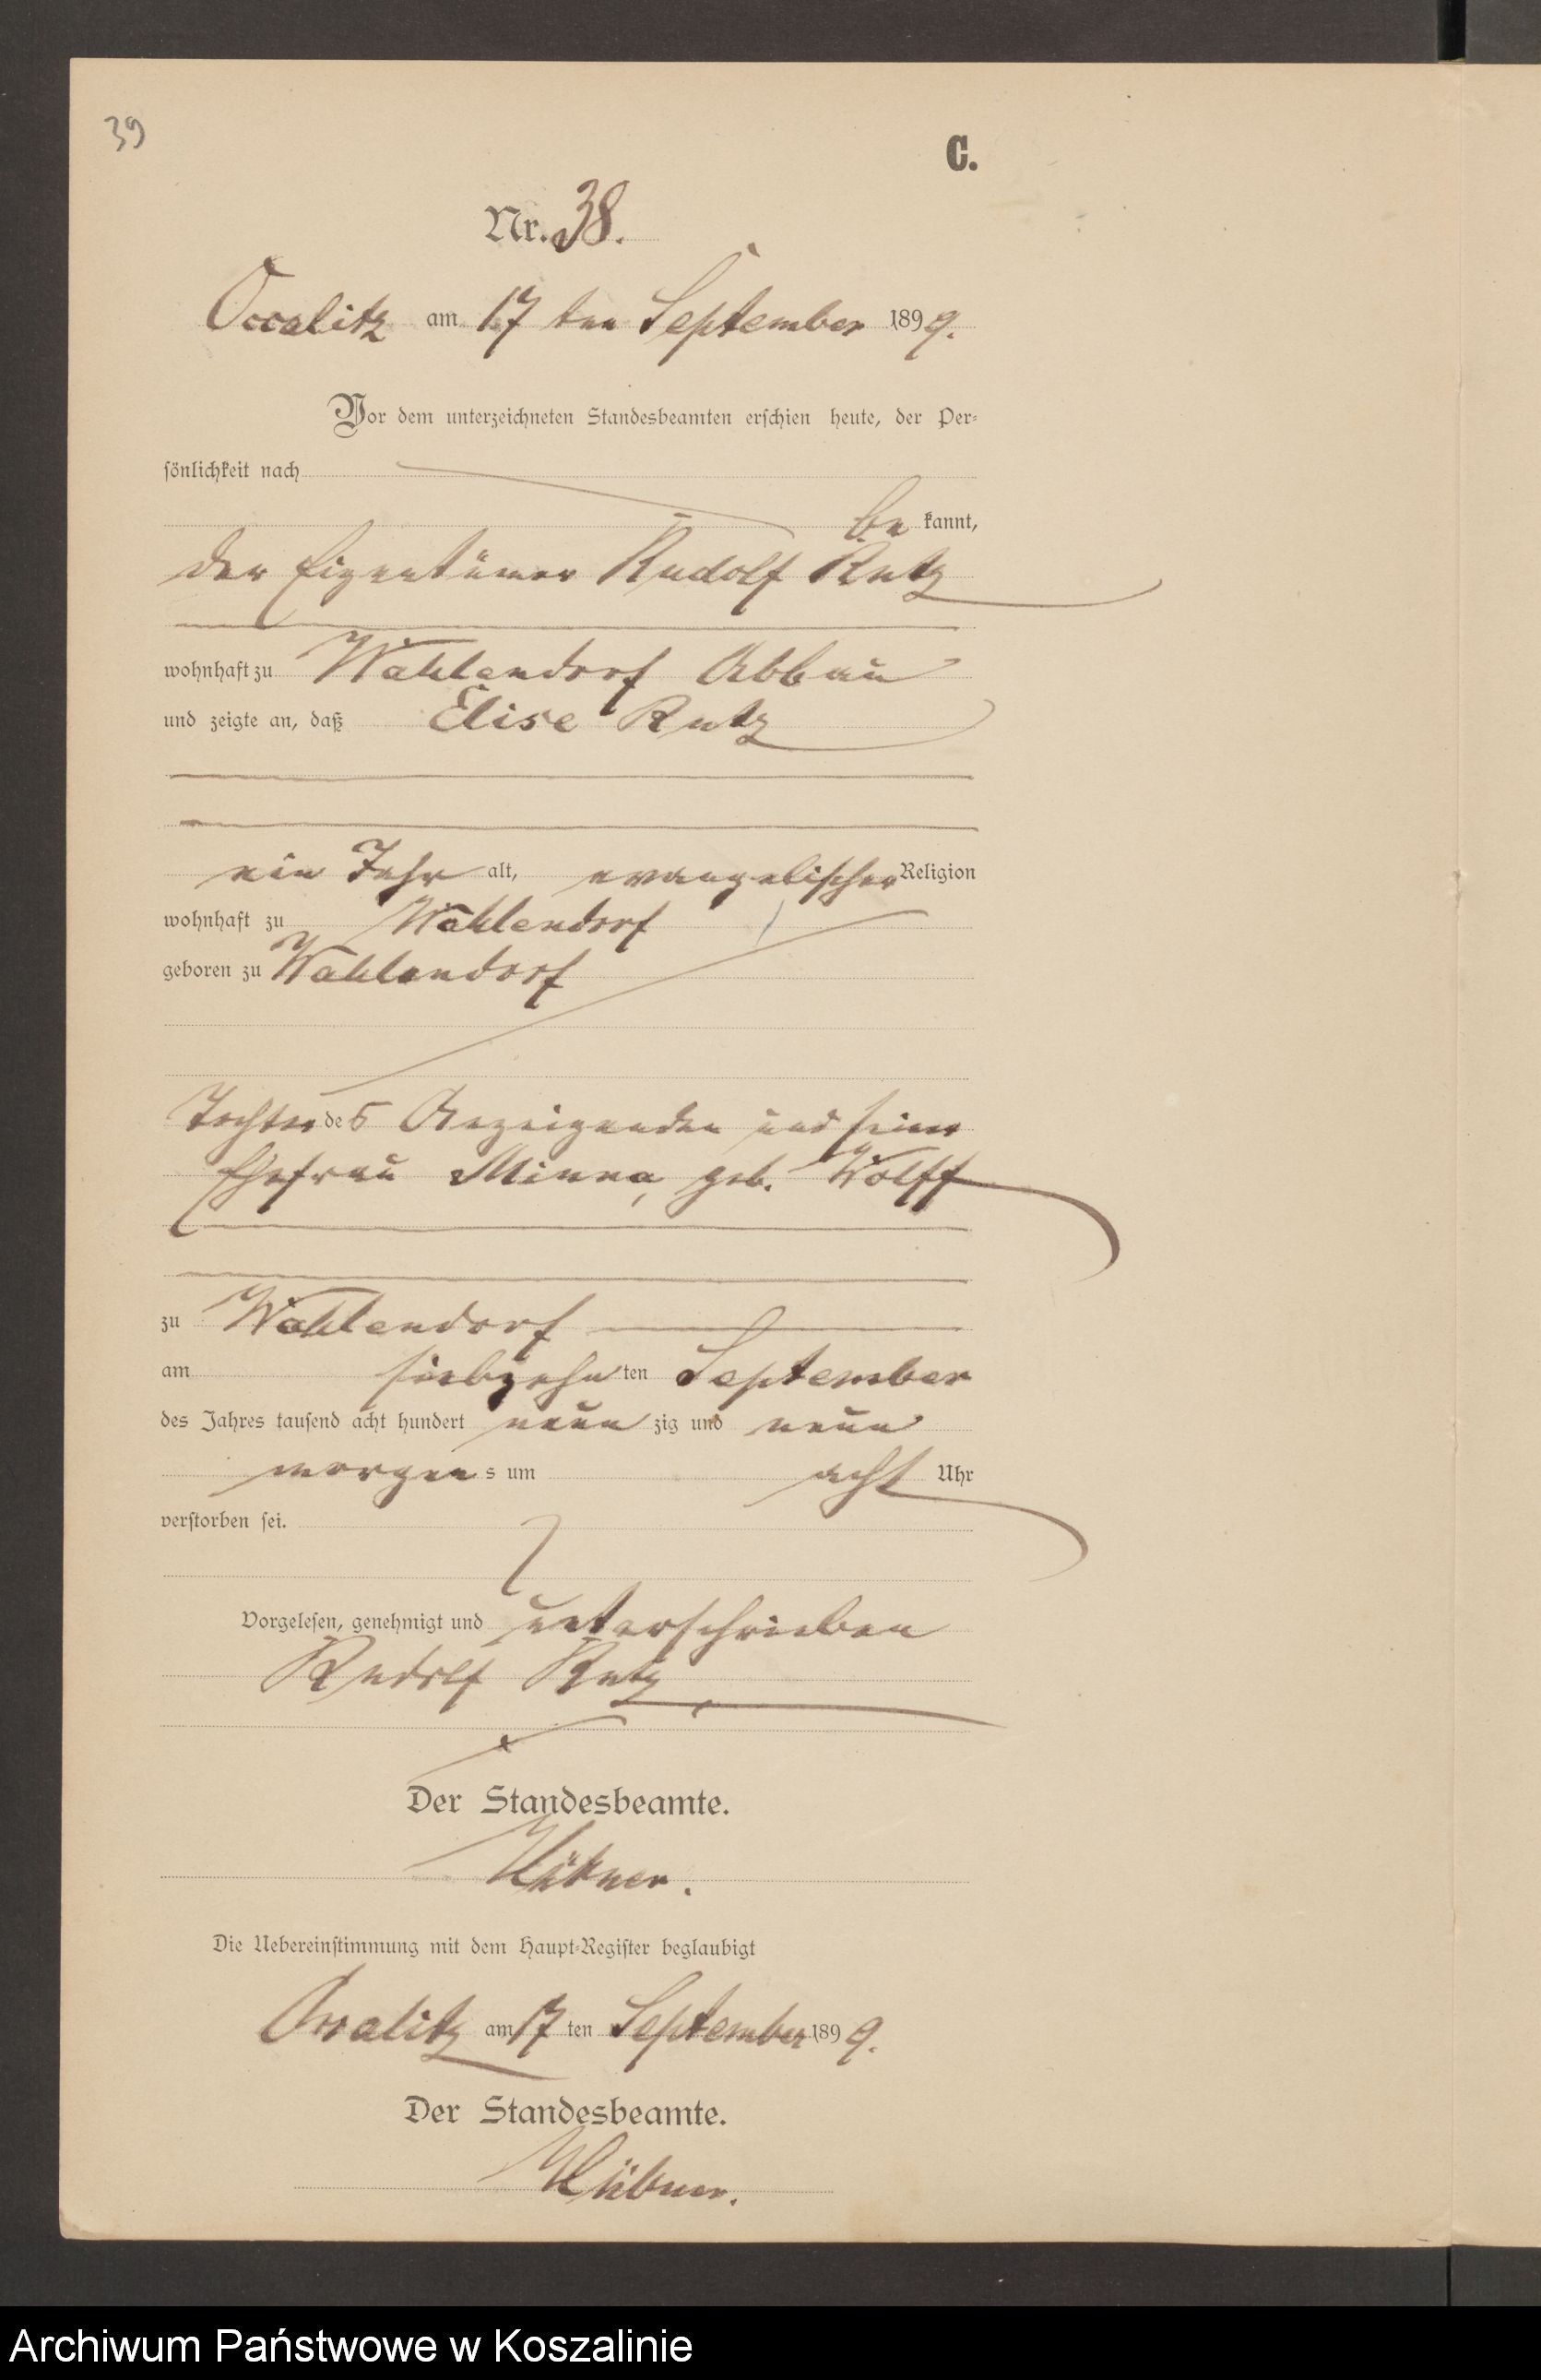 39
C.
Nr. 38.
Occalitz am 17 ten September 1899.
Vor dem unterzeichneten Standesbeamten erschien heute, der Per-
sönlichkeit nach
be kannt,
der Eigentümer Rudolf Rutz
wohnhaft zu Wahlendorf Abbau
und zeigte an, daß Elise Rutz
ein Jahr alt, evangelischer Religion
wohnhaft zu Wahlendorf
geboren zu Wahlendorf
Tochter des Anzeigenden und seiner
Ehefrau Minna, geb. Wolff
zu Wahlendorf
am siebzehn ten September
des Jahres tausend acht hundert neun zig und neun
morgens um acht Uhr
verstorben sei.
Vorgelesen, genehmigt und unterschrieben
Rudolf Rutz
Der Standesbeamte.
Hübner.
Die Uebereinstimmung mit dem Haupt-Register beglaubigt
Occalitz am 17 ten September 1899.
Der Standesbeamte.
Hübner.
Archiwum Państwowe w Koszalinie